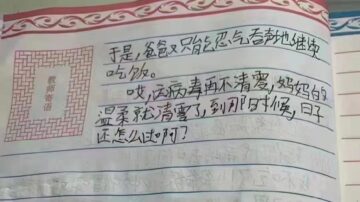 于是,爸爸又只能忍气吞声地继续
吃饭。
哎,病毒再不清零,妈妈的
温柔就清零了,到那时候,日子
还怎么过啊?
教师寄语